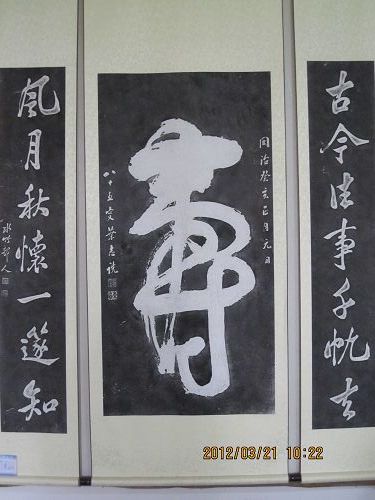 古今往事千帆去
同治癸亥正月元日
壽
八十五叟葉志詵
風月秋懷一篴知
水竹邨人
2012/03/21 10:22